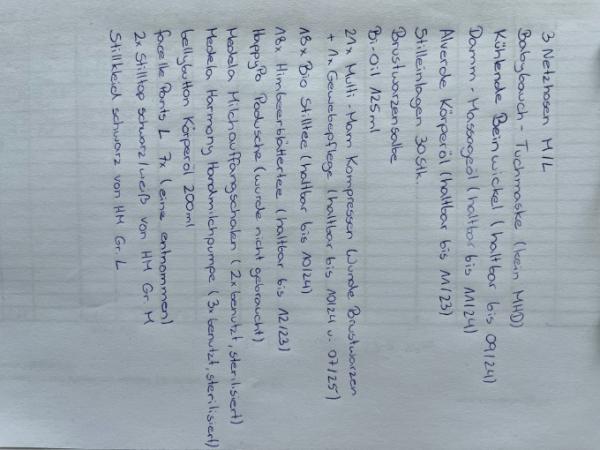 3 Netzhosen M/L
Babybauch - Tuchmaske (kein MHD)
Kühlende Beinwickel (haltbar bis 09/24)
Damm - Massageöl (haltbar bis 11/24)
Alverde Körperöl (haltbar bis 11/23)
Stilleinlagen 30 Stk.
Brustwarzensalbe
Bi-Oil 125ml
21x Multi-Mam Kompressen Wunde Brustwarzen
+ 1x Gewebepflege (haltbar bis 10/24 u. 07/25)
18x Bio Stilltee (haltbar bis 10/24)
18x Himbeerblättertee (haltbar bis 12/23)
HappyPo Podusche (wurde nicht gebraucht)
Medela Milchauffangschalen (2x benutzt, sterilisiert)
Medela Harmony Handmilchpumpe (3x benutzt, sterilisiert)
bellybutton Körperöl 200ml
facelle Pants L 7x (eine entnommen)
2x Stilltop schwarz/weiß von HM Gr. M
Stillkleid schwarz von HM Gr. L